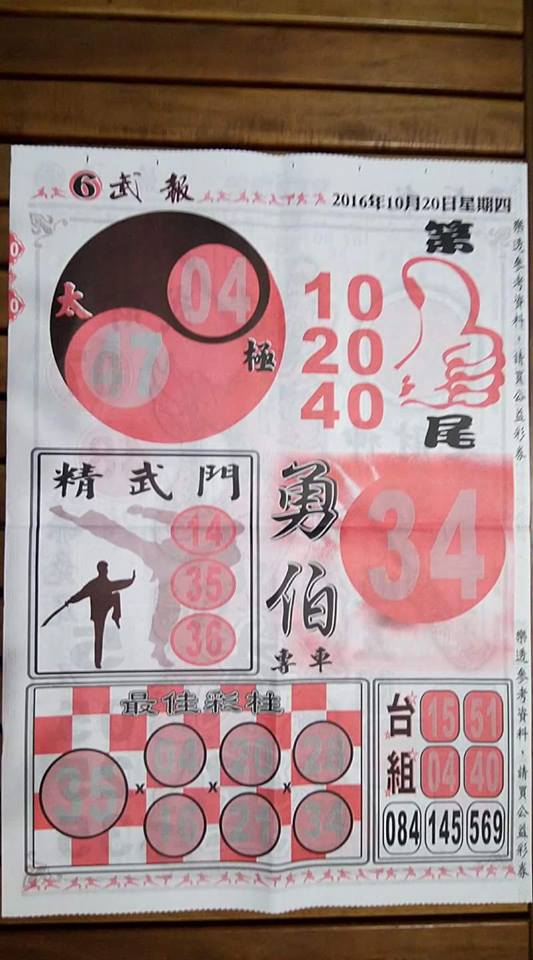 6 武報
2016年10月20日星期四
太
04
47
極
10
20
40
第
尾
樂透參考資料，請買公益彩券
精武門
14
35
36
勇伯
專車
34
樂透參考資料，請買公益彩券
最佳彩柱
35 x 04 x 20 x 28
16 21 34
台組
15 51
04 40
084 145 569